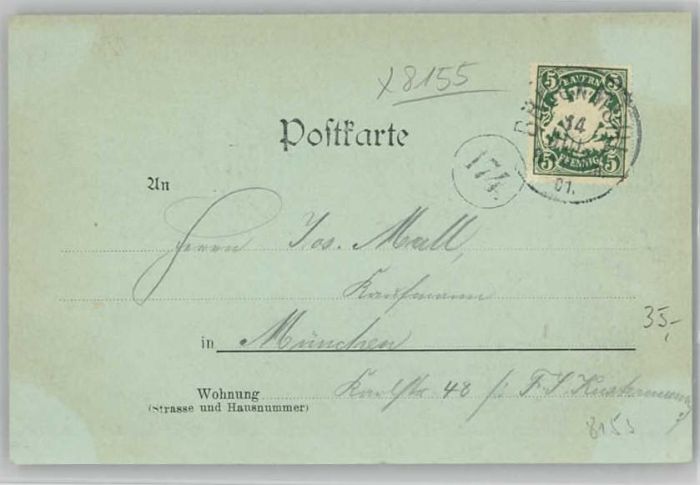 x 8155
5 BAYERN 5
5 PFENNIG 5
14
01.
174.
Postkarte
An
Herrn Jos. Mall,
Kaufmann
35,-
in München
Wohnung Karlstr 48
(Strasse und Hausnummer)
8155